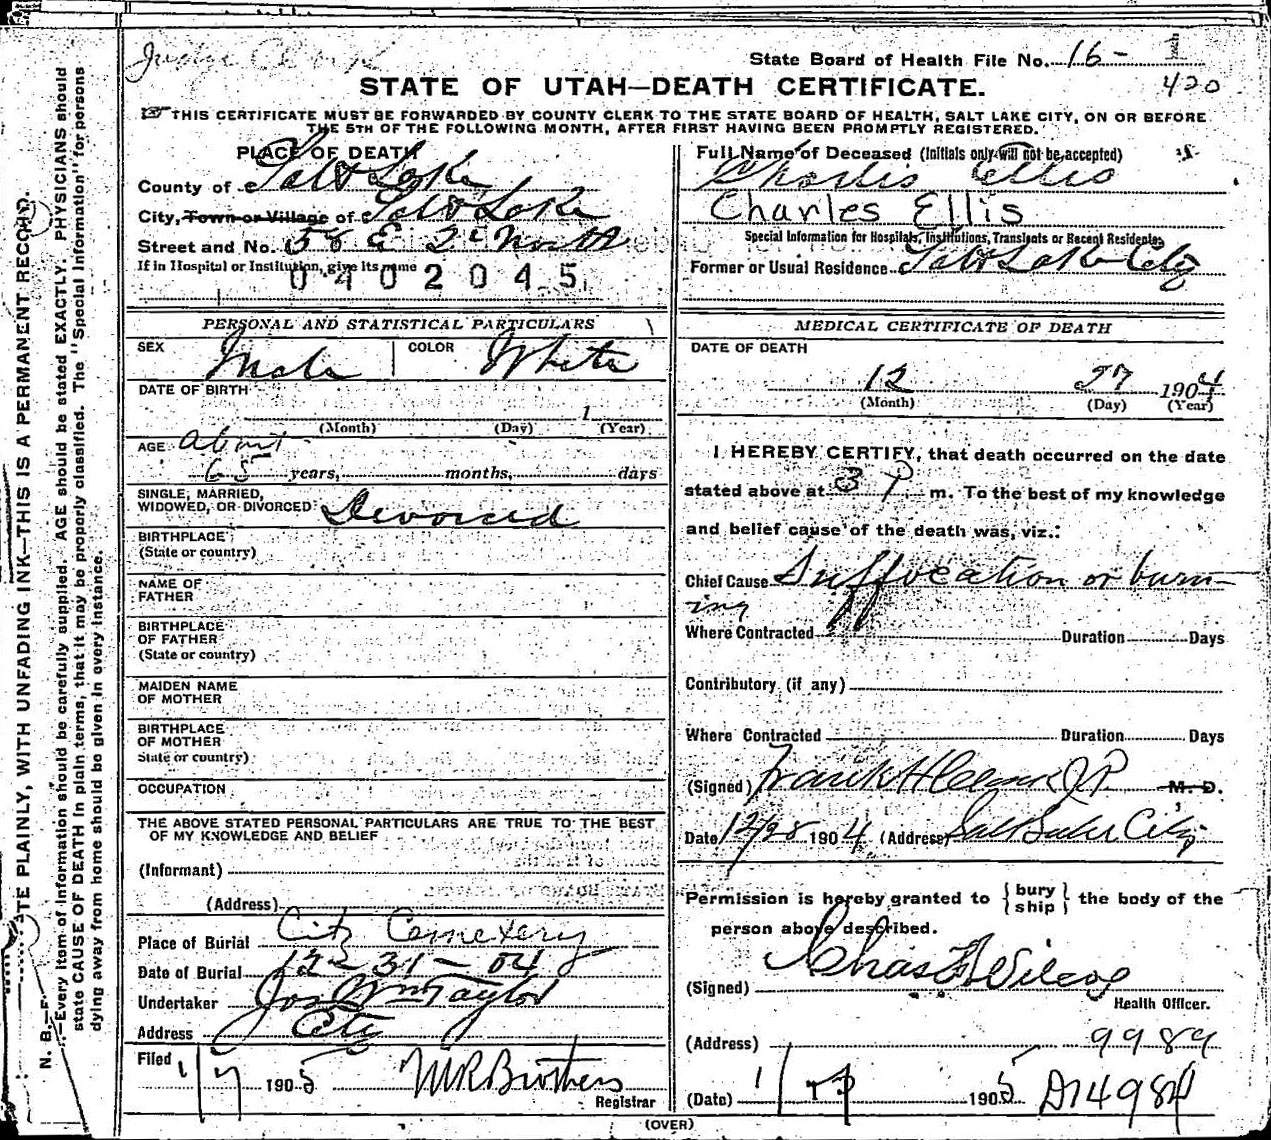 Judge Clark
State Board of Health File No. 16-
420
STATE OF UTAH—DEATH CERTIFICATE.
THIS CERTIFICATE MUST BE FORWARDED BY COUNTY CLERK TO THE STATE BOARD OF HEALTH, SALT LAKE CITY, ON OR BEFORE
THE 5TH OF THE FOLLOWING MONTH, AFTER FIRST HAVING BEEN PROMPTLY REGISTERED.
PLACE OF DEATH
County of Salt Lake
City, Town or Village of Salt Lake
Street and No. 58 E 2d North
If in Hospital or Institution, give its name
0402045
PERSONAL AND STATISTICAL PARTICULARS
SEX Male COLOR White
DATE OF BIRTH
1
(Month) (Day) (Year)
AGE about
65 years, months, days
SINGLE, MARRIED,
WIDOWED, OR DIVORCED Divorced
BIRTHPLACE
(State or country)
NAME OF
FATHER
BIRTHPLACE
OF FATHER
(State or country)
MAIDEN NAME
OF MOTHER
BIRTHPLACE
OF MOTHER
State or country)
OCCUPATION
THE ABOVE STATED PERSONAL PARTICULARS ARE TRUE TO THE BEST
OF MY KNOWLEDGE AND BELIEF
(Informant)
(Address)
Place of Burial City Cemetery
Date of Burial 12-31-04
Undertaker Jos Wm Taylor
Address City
Filed 1/7 1905 M R Brothers
Registrar
Full Name of Deceased (Initials only will not be accepted)
Charles Ellis
Charles Ellis
Special Information for Hospitals, Institutions, Transients or Recent Residents
Former or Usual Residence Salt Lake City
MEDICAL CERTIFICATE OF DEATH
DATE OF DEATH
12 27 1904
(Month) (Day) (Year)
I HEREBY CERTIFY, that death occurred on the date
stated above at 3 P. m. To the best of my knowledge
and belief cause of the death was, viz.:
Chief Cause Suffocation or burn-
ing
Where Contracted Duration Days
Contributory (if any)
Where Contracted Duration Days
(Signed) Frank H J.P. M. D.
Date 12/28 1904 (Address) Salt Lake City
Permission is hereby granted to { bury ship } the body of the
person above described.
(Signed) Chas F Wilcox
Health Officer.
(Address) 9989
(Date) 1/ 1905 D14984
(OVER)
N. B.—Every item of information should be carefully supplied. AGE should be stated EXACTLY. PHYSICIANS should
state CAUSE OF DEATH in plain terms, that it may be properly classified. The "Special Information" for persons
dying away from home should be given in every instance.
TE PLAINLY, WITH UNFADING INK—THIS IS A PERMANENT RECORD.